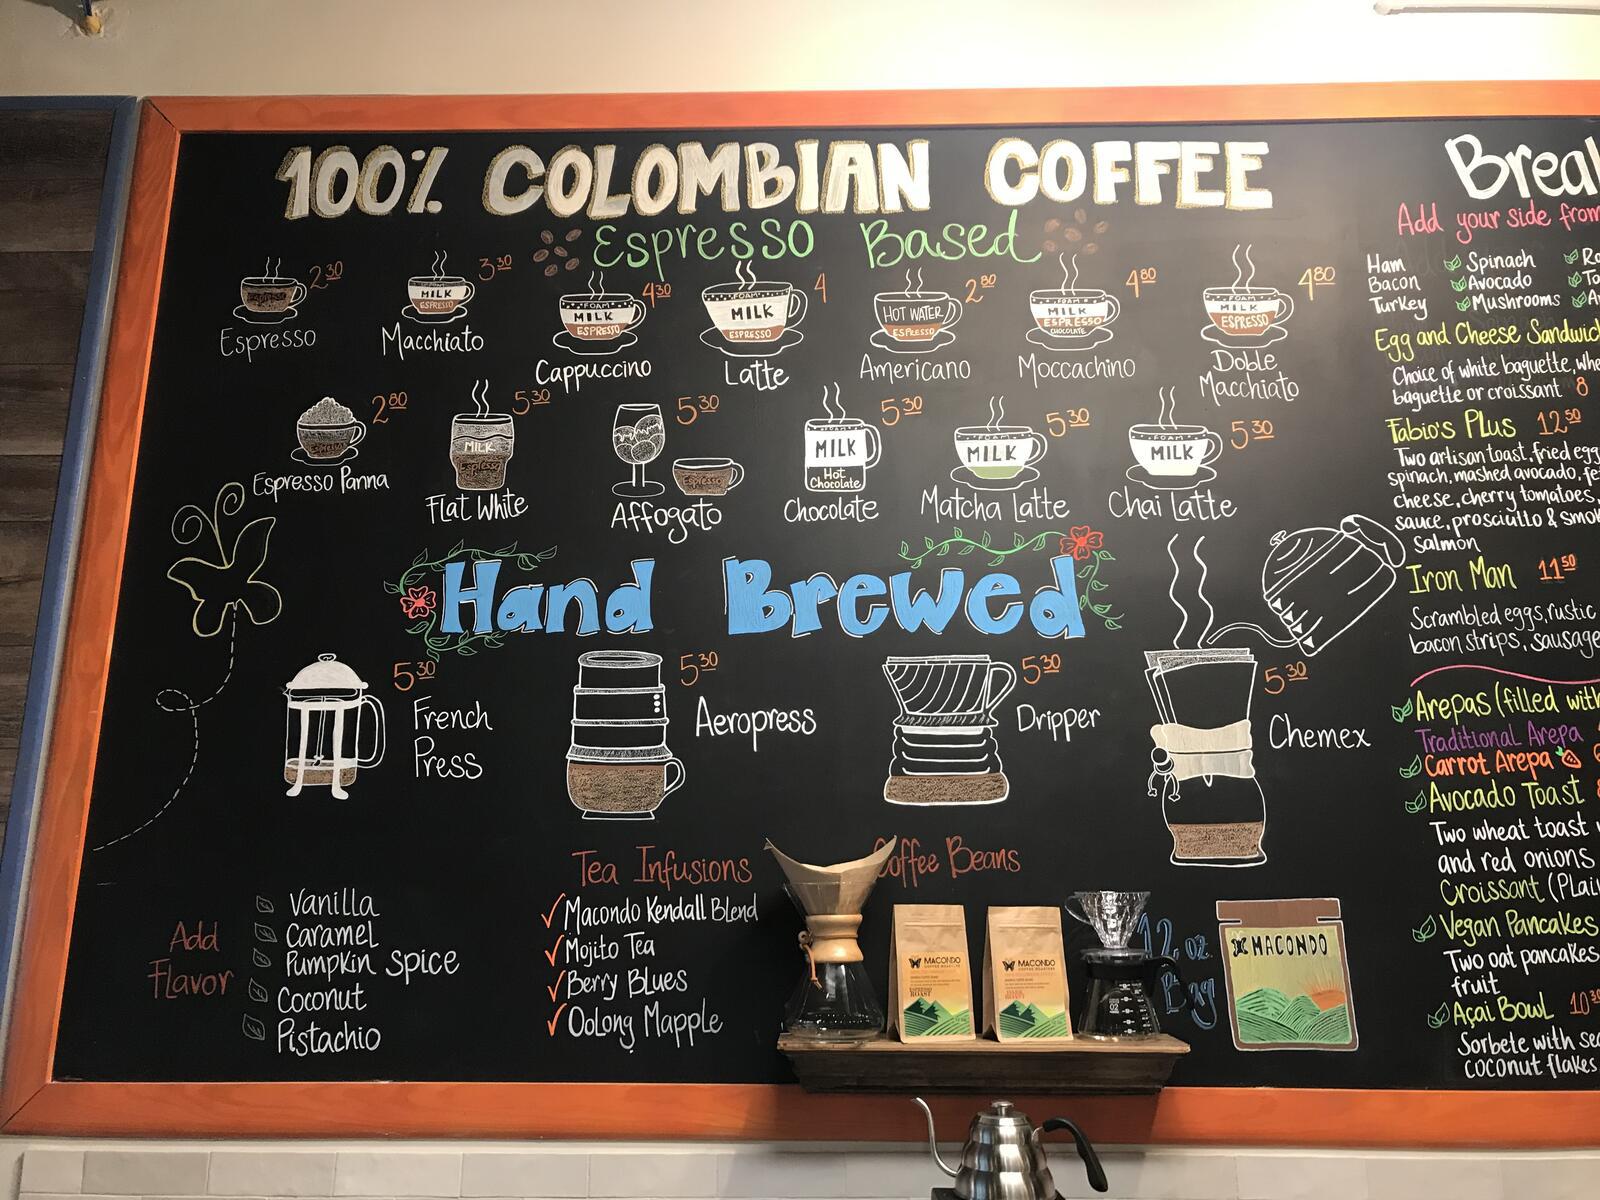 100% COLOMBIAN COFFEE
Espresso Based
2 30
Espresso
ESPRESSO
3 30
FOAM
MILK
ESPRESSO
Macchiato
4 30
FOAM
MILK
ESPRESSO
Cappuccino
4
FOAM
MILK
ESPRESSO
Latte
2 80
HOT WATER
ESPRESSO
Americano
4 80
MILK
ESPRESSO
CHOCOLATE
Moccachino
4 80
FOAM
MILK
ESPRESSO
Doble
Macchiato
2 80
Espresso Panna
5 30
MILK
Espresso
Flat White
5 30
Espresso
Affogato
5 30
FOAM
MILK
Hot
Chocolate
Chocolate
5 30
FOAM
MILK
Matcha Latte
5 30
FOAM
MILK
Chai Latte
Hand Brewed
5 30
French
Press
5 30
Aeropress
5 30
Dripper
5 30
Chemex
Add
Flavor
Vanilla
Caramel
Pumpkin spice
Coconut
Pistachio
Tea Infusions
Macondo Kendall Blend
Mojito Tea
Berry Blues
Oolong Mapple
Coffee Beans
MACONDO
COFFEE ROASTERS
ESPRESSO
ROAST
MACONDO
COFFEE ROASTERS
12 oz.
Bag
MACONDO
Add your side from
Ham
Bacon
Turkey
Spinach
Avocado
Mushrooms
Egg and Cheese Sandwich
Choice of white baguette,
baguette or croissant 8
Fabio's Plus 12 50
Two artisan toast, fried egg
spinach, mashed avocado,
cheese, cherry tomatoes,
sauce, prosciutto &
Salmon
Iron Man 11 50
Scrambled eggs, rustic
bacon strips, sausage
Arepas (filled with
Traditional Arepa
Carrot Arepa
Avocado Toast
Two wheat toast
and red onions
Croissant
Vegan Pancakes
Two oat pancakes
fruit
Açai Bowl 10 30
Sorbete with
coconut flakes